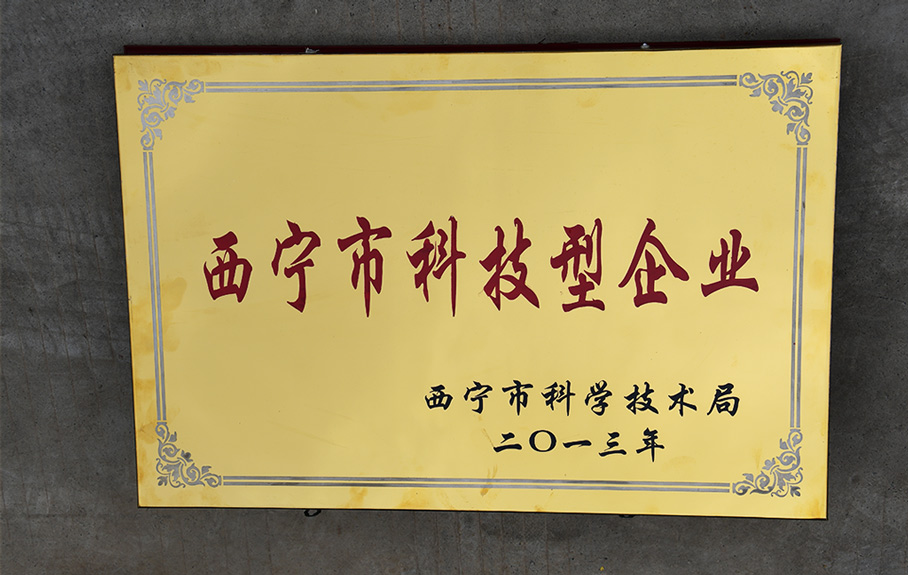 西宁市科技型企业
西宁市科学技术局
二〇一三年